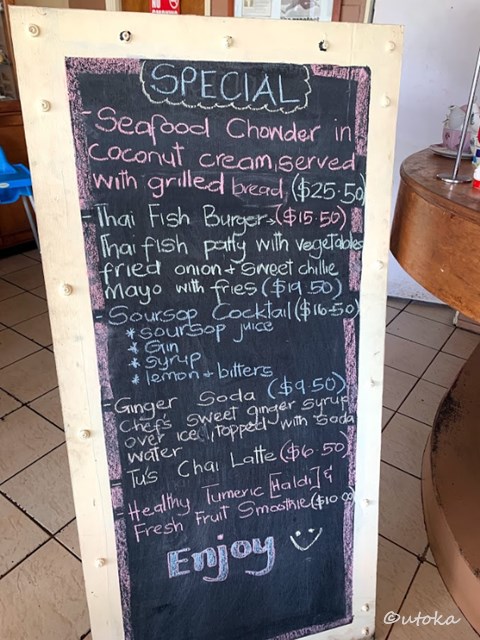 SPECIAL
- Seafood Chowder in
coconut cream, served
with grilled bread, ($25.50)
- Thai Fish Burger ($15.50)
Thai fish patty with vegetables
fried onion + sweet chille
Mayo with fries ($19.50)
- Soursop Cocktail ($16.50)
* soursop juice
* Gin
* syrup
* lemon + bitters
- Ginger Soda ($9.50)
Chef's sweet ginger syrup
over ice, topped with soda
water
- Tu's Chai Latte ($6.50)
- Healthy Tumeric [Haldi] &
Fresh Fruit Smoothie ($10.00)
Enjoy
©utoka